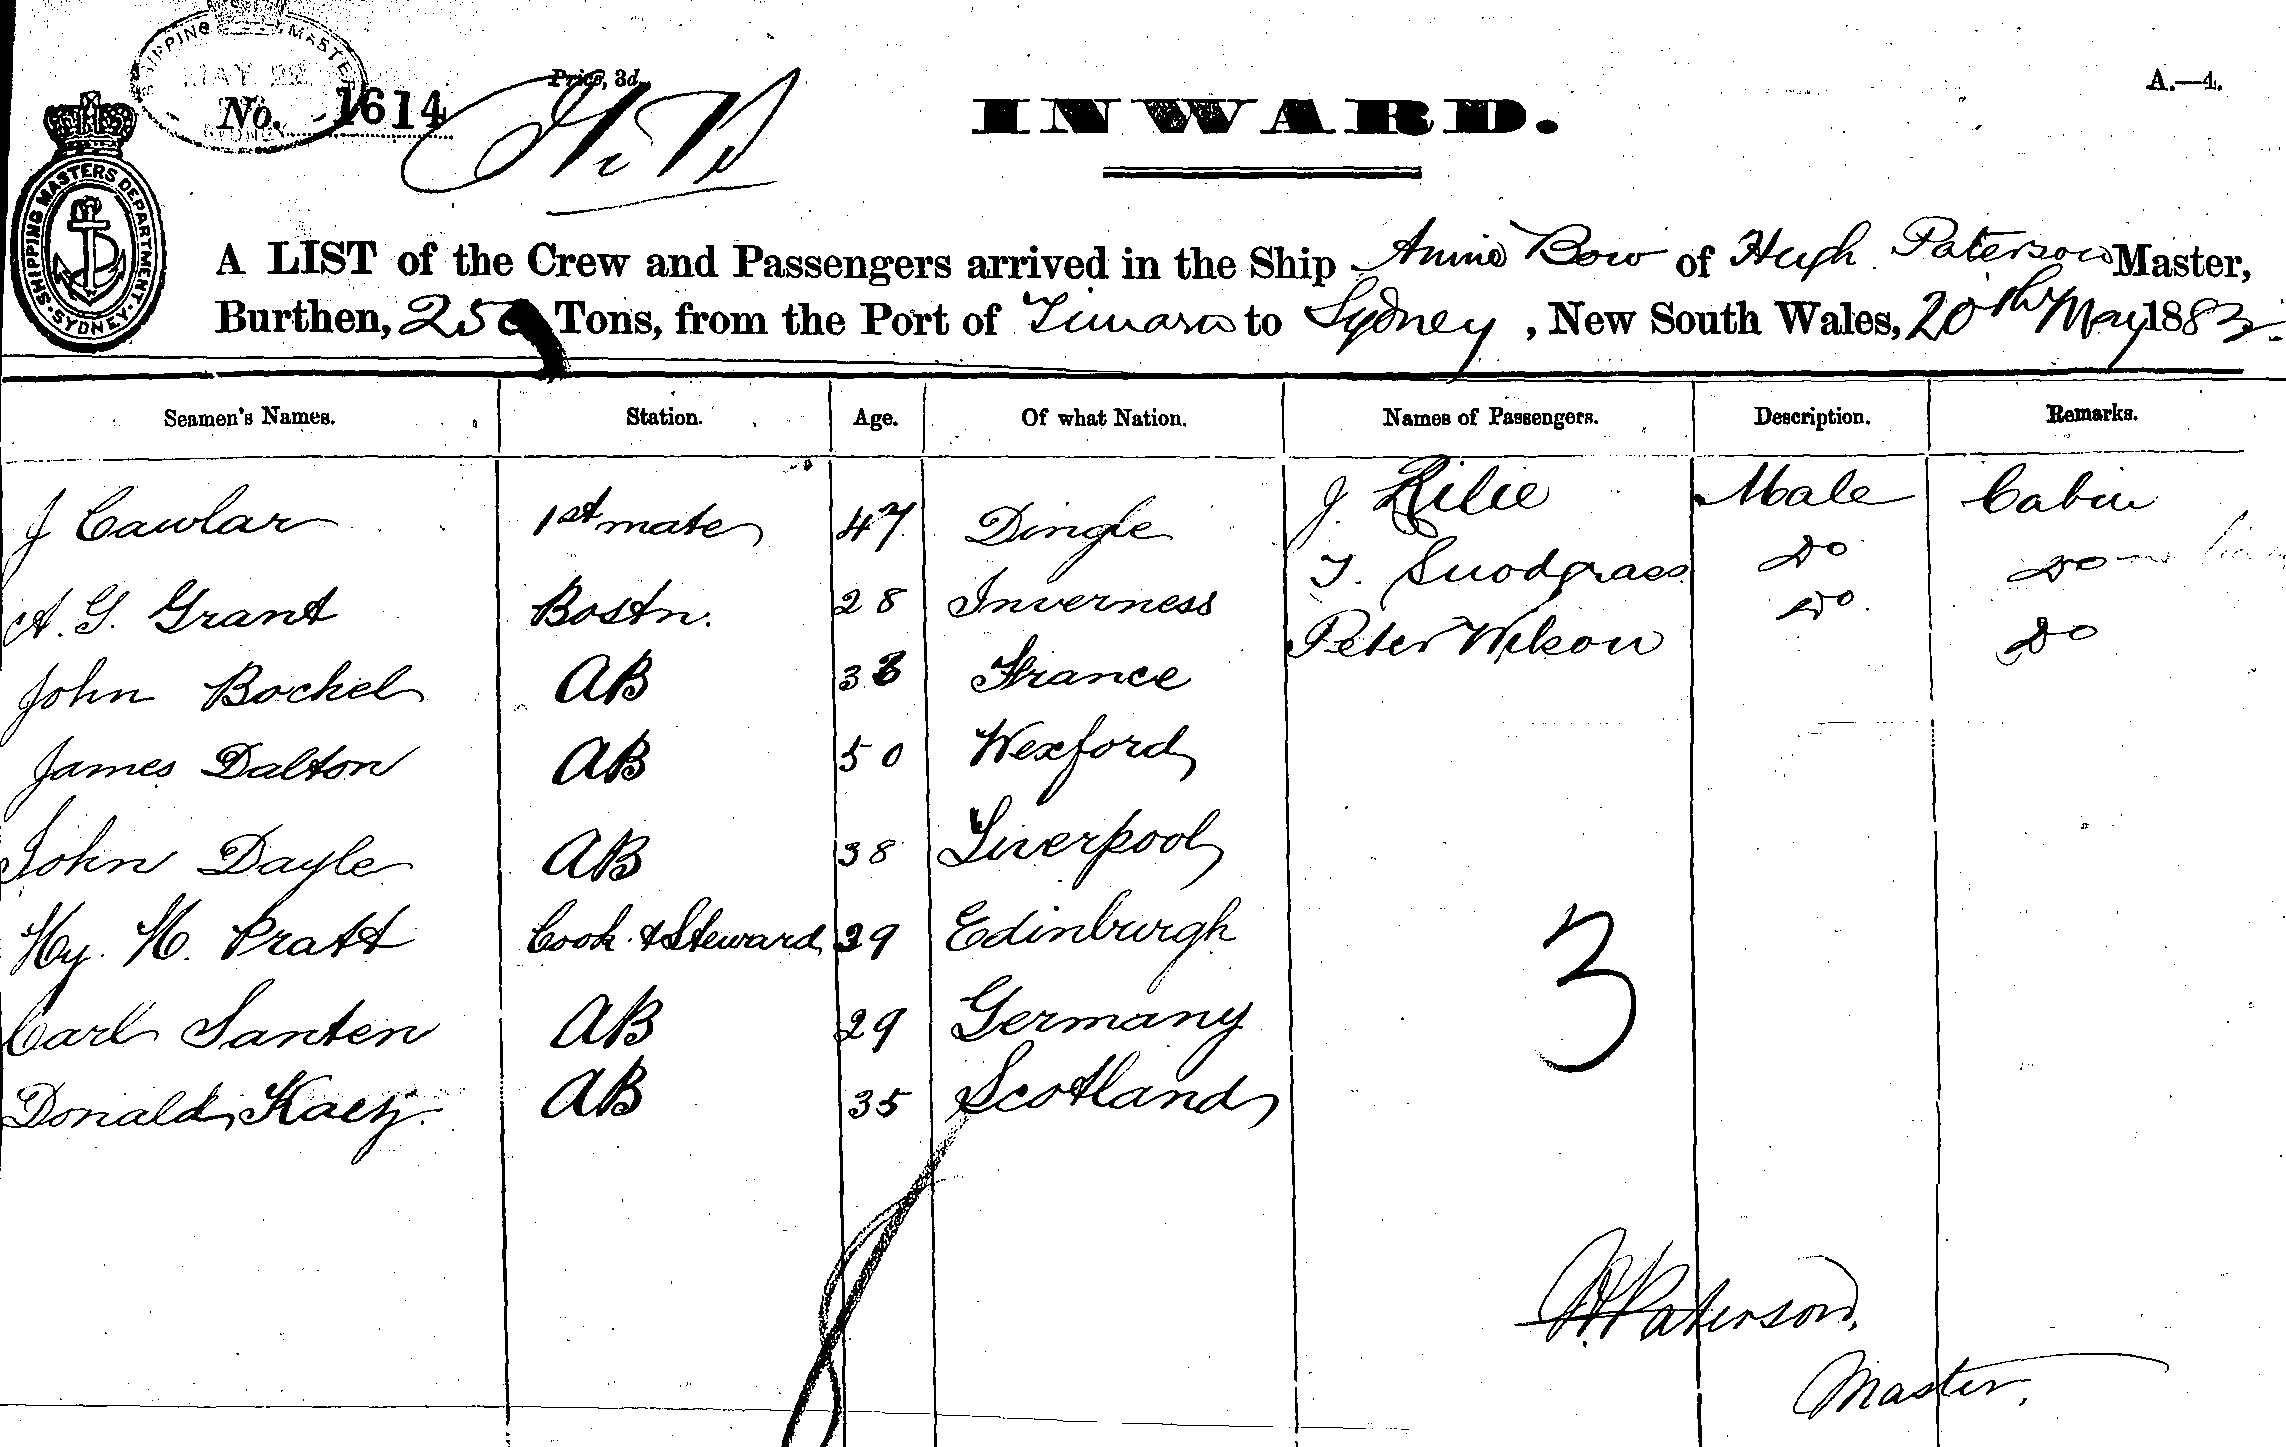 SHIPPING MASTER
MAY 22
SYDNEY
No. 1614
Price, 3d.
A.—4.
INWARD.
SHIPPING MASTERS DEPARTMENT. SYDNEY.
A LIST of the Crew and Passengers arrived in the Ship Annie Bow of Hugh Paterson Master,
Burthen, 250 Tons, from the Port of Timaru to Sydney, New South Wales, 20th May 1883.
Seamen's Names. Station. Age. Of what Nation. Names of Passengers. Description. Remarks.
J Cawlar 1st mate 47 Dingle J. Rilie Male Cabin
T. Snodgrass Do Do
A. G. Grant Bostn. 28 Inverness Peter Wilson Do Do
John Bockel AB 38 France
James Dalton AB 50 Wexford
John Dayle AB 38 Liverpool
Hy. H. Pratt Cook & Steward 29 Edinburgh
Carl Santen AB 29 Germany
Donald AB 35 Scotland
3
H Paterson.
Master.